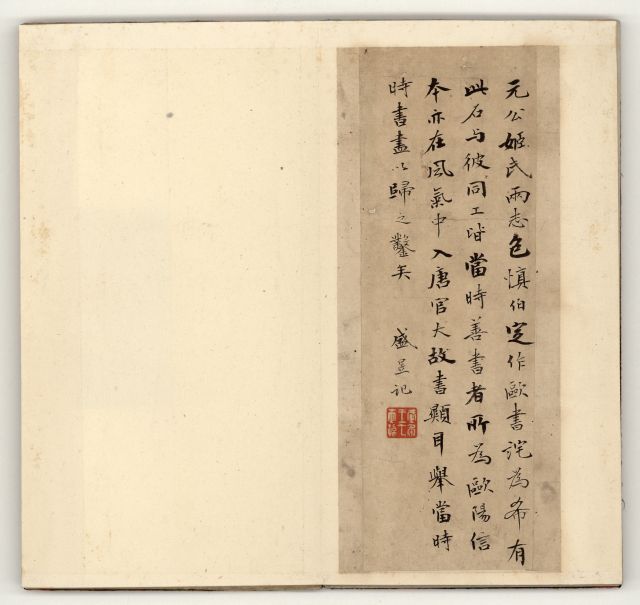 元公姬氏兩志包慎伯定作歐書詫為希有
此石与彼同工皆當時善書者所為歐陽信
本亦在風氣中入唐官大故書顯耳舉當時
時書盡以歸之鑿矣
盛昱記